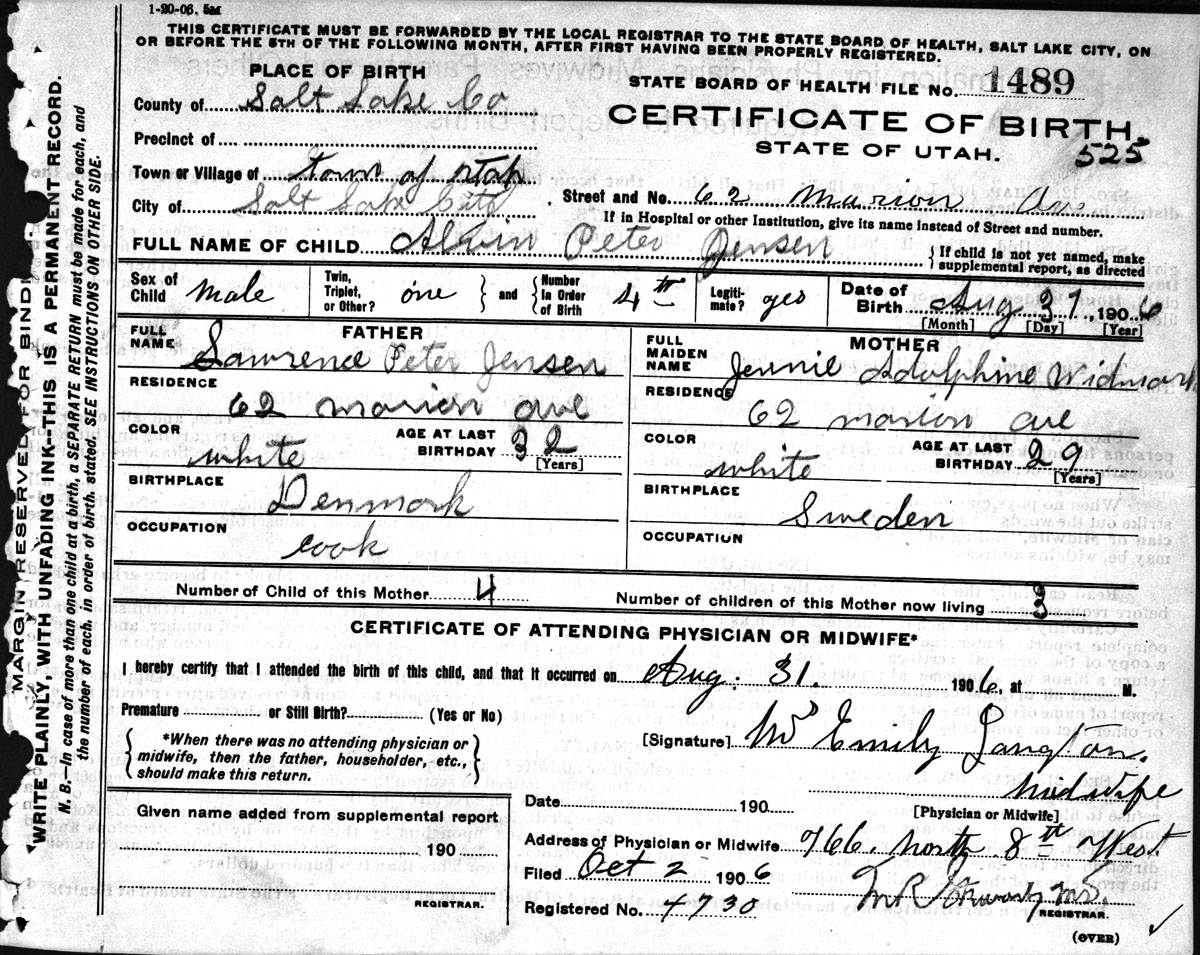 1-20-06, 5M
THIS CERTIFICATE MUST BE FORWARDED BY THE LOCAL REGISTRAR TO THE STATE BOARD OF HEALTH, SALT LAKE CITY, ON
OR BEFORE THE 5TH OF THE FOLLOWING MONTH, AFTER FIRST HAVING BEEN PROPERLY REGISTERED.
PLACE OF BIRTH
STATE BOARD OF HEALTH FILE NO. 1489
County of Salt Lake Co
CERTIFICATE OF BIRTH.
Precinct of
STATE OF UTAH. 525
Town or Village of town of utah
City of Salt Lake City Street and No. 62 Marion Ave
If in Hospital or other Institution, give its name instead of Street and number.
FULL NAME OF CHILD Alvin Peter Jensen { If child is not yet named, make
supplemental report, as directed
Sex of Child Male Twin, Triplet, or Other? one } and { Number In Order of Birth 4th Legiti- mate? yes Date of Birth Aug 31, 1906
[Month] [Day] [Year]
FATHER
FULL NAME Lawrence Peter Jensen
RESIDENCE
62 Marion ave
COLOR white AGE AT LAST BIRTHDAY 32
[Years]
BIRTHPLACE Denmark
OCCUPATION
cook
MOTHER
FULL MAIDEN NAME Jennie Adolphine Widmark
RESIDENCE
62 Marion ave
COLOR white AGE AT LAST BIRTHDAY 29
[Years]
BIRTHPLACE
Sweden
OCCUPATION
Number of Child of this Mother 4 Number of children of this Mother now living 3
CERTIFICATE OF ATTENDING PHYSICIAN OR MIDWIFE*
I hereby certify that I attended the birth of this child, and that it occurred on Aug. 31. 1906, at M.
Premature or Still Birth? (Yes or No)
{ *When there was no attending physician or
midwife, then the father, householder, etc.,
should make this return. }
[Signature] Mrs Emily Langton.
Midwife
[Physician or Midwife]
Date 190
Given name added from supplemental report
190
REGISTRAR.
Address of Physician or Midwife 766. North 8th West
Filed Oct 2 1906
M.D.
REGISTRAR.
Registered No. 4730
(OVER)
MARGIN RESERVED FOR BINDI
WRITE PLAINLY, WITH UNFADING INK--THIS IS A PERMANENT RECORD.
N. B.—In case of more than one child at a birth, a SEPARATE RETURN must be made for each, and
the number of each, in order of birth, stated. SEE INSTRUCTIONS ON OTHER SIDE.